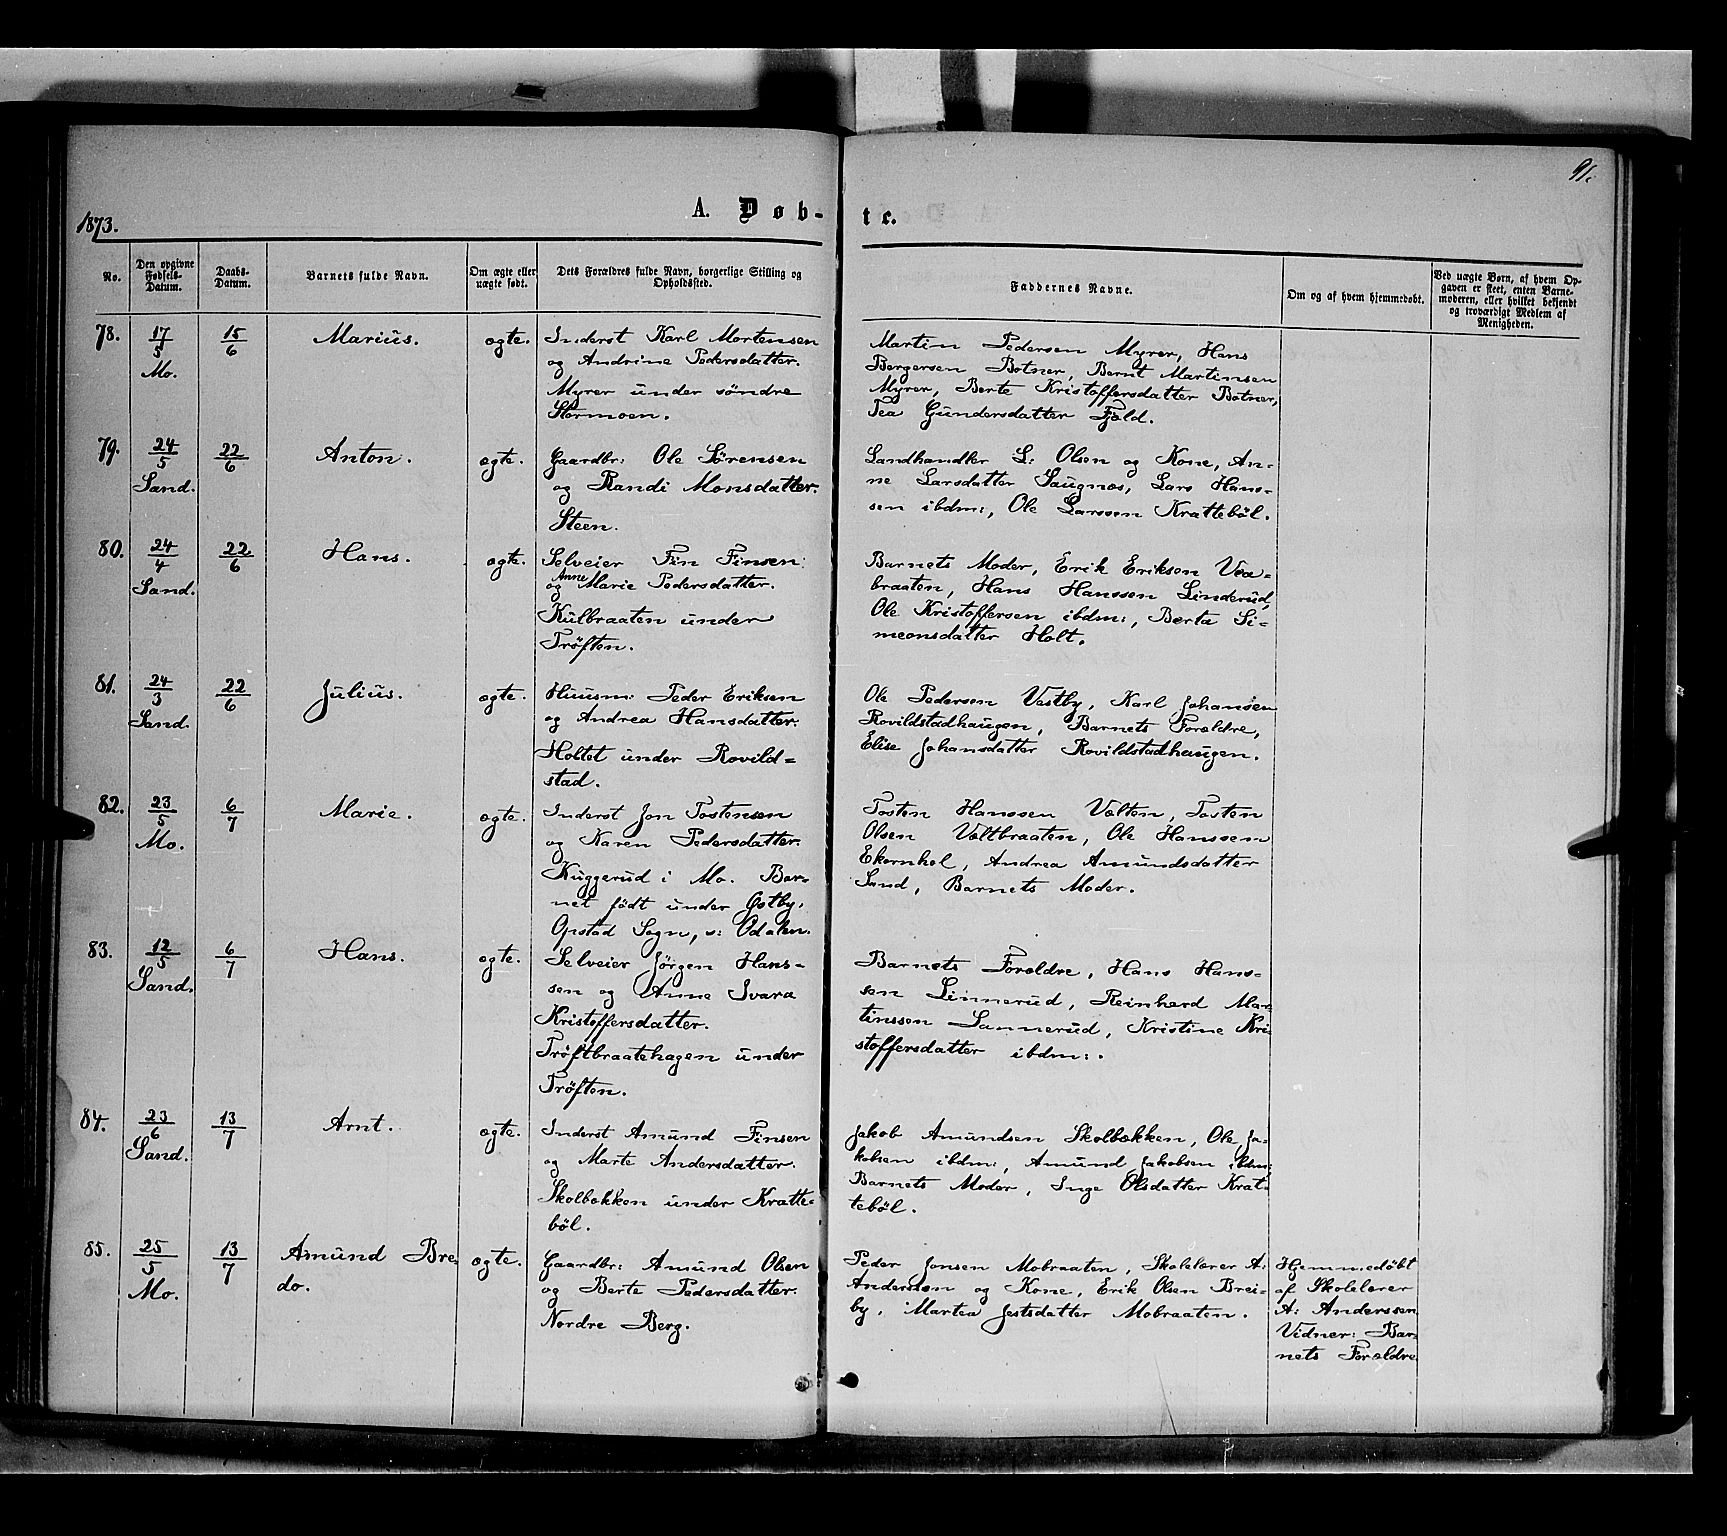 91.
1873.
A. Døb-
te.
No.
Den opgivne
Fødsels-
Datum.
Daabs-
Datum.
Barnets fulde Navn.
Om ægte eller
uægte født.
Dets Forældres fulde Navn, borgerlige Stilling og
Opholdssted.
Faddernes Navne.
Om og af hvem hjemmedøbt.
Ved uægte Børn, af hvem Op-
gaven er skeet, enten Barne-
moderen, eller hvilket bekjendt
og troværdigt Medlem af
Menigheden.
78.
17/5
Mo.
15/6
Marius.
ægte.
Inderst Karl Mortensen
og Andrine Pedersdatter.
Myrer under søndre
Stormoen.
Martin Pedersen Myrer, Hans
Bergersen Botner, Bernt Martinsen
Myrer, Berte Kristoffersdatter Botner,
Tea Gundersdatter Fjeld.
79.
24/5
Sand.
22/6
Anton.
ægte.
Gaardbr: Ole Sørensen
og Randi Monsdatter.
Steen.
Landhandler L: Olsen og Kone, An-
ne Larsdatter Saugnæs, Lars Hans-
sen ibdm:, Ole Larssen Krattebøl.
80.
24/4
Sand.
22/6
Hans.
ægte.
Selveier Fin Finsen
og Anne Marie Pedersdatter.
Kulbraaten under
Trøften.
Barnets Moder, Erik Eriksen Væ-
braaten, Hans Hanssen Linderud,
Ole Kristoffersen ibdm:, Berta Si-
meonsdatter Holt.
81.
24/3
Sand.
22/6
Julius.
ægte.
Huusm: Peder Eriksen
og Andrea Hansdatter.
Holtet under Rovild=
stad.
Ole Pedersen Vestby, Karl Johansen
Rovildstadhaugen, Barnets Forældre,
Elise Johansdatter Rovildstadhaugen.
82.
23/5
Mo.
6/7
Marie.
ægte.
Inderst Jon Tostensen
og Karen Pedersdatter.
Kuggerud i Mo. Bar-
net født under Østby,
Opstad Sogn, s: Odalen.
Tosten Hanssen Vælten, Tosten
Olsen Væltbraaten, Ole Hanssen
Ekornhol, Andrea Amundsdatter
Sand, Barnets Moder.
83.
12/5
Sand.
6/7
Hans.
ægte.
Selveier Jørgen Hans-
sen og Anne Svara
Kristoffersdatter.
Trøftbraatehagen under
Trøften.
Barnets Forældre, Hans Hans-
sen Linnerud, Reinhard Mar-
tinssen Sannerud, Kristine Kri-
stoffersdatter ibdm:.
84.
23/6
Sand.
13/7
Arnt.
ægte.
Inderst Amund Finsen
og Marte Andersdatter.
Skolbækken under Kratte-
bøl.
Jakob Amundsen Skolbækken, Ole Ja-
kobsen ibdm:, Amund Jakobsen ibdm:
Barnets Moder, Inge Olsdatter Krat-
tebøl.
85.
25/5
Mo.
13/7
Amund Bre-
do.
ægte.
Gaardbr: Amund Olsen
og Berte Pedersdatter.
Nordre Berg.
Peder Jonsen Mobraaten, Skolelærer A:
Anderssen og Kone, Erik Olsen Brei-
by, Martea Jestsdatter Mobraaten.
Hjemmedøbt
af Skolelærer
A: Anderssen
Vidner: Bar-
nets Forældre.